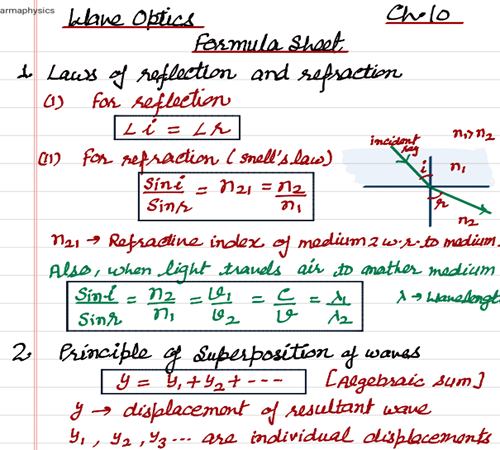 armaphysics
Wave Optics
Ch-10
Formula Sheet
1. Laws of reflection and refraction
(i) For reflection
∠i = ∠r
(ii) For refraction (snell's law)
Sin i / Sin r = n21 = n2 / n1
incident ray
n1>n2
i
n1
r
n2
n21 → Refractive index of medium 2 w.r. to medium.
Also, when light travels air to another medium
Sin i / Sin r = n2 / n1 = v1 / v2 = c / v = λ1 / λ2
λ → wavelengt
2. Principle of Superposition of waves
y = y1 + y2 + --- [Algebraic sum]
y → displacement of resultant wave
y1, y2, y3 ... are individual displacements